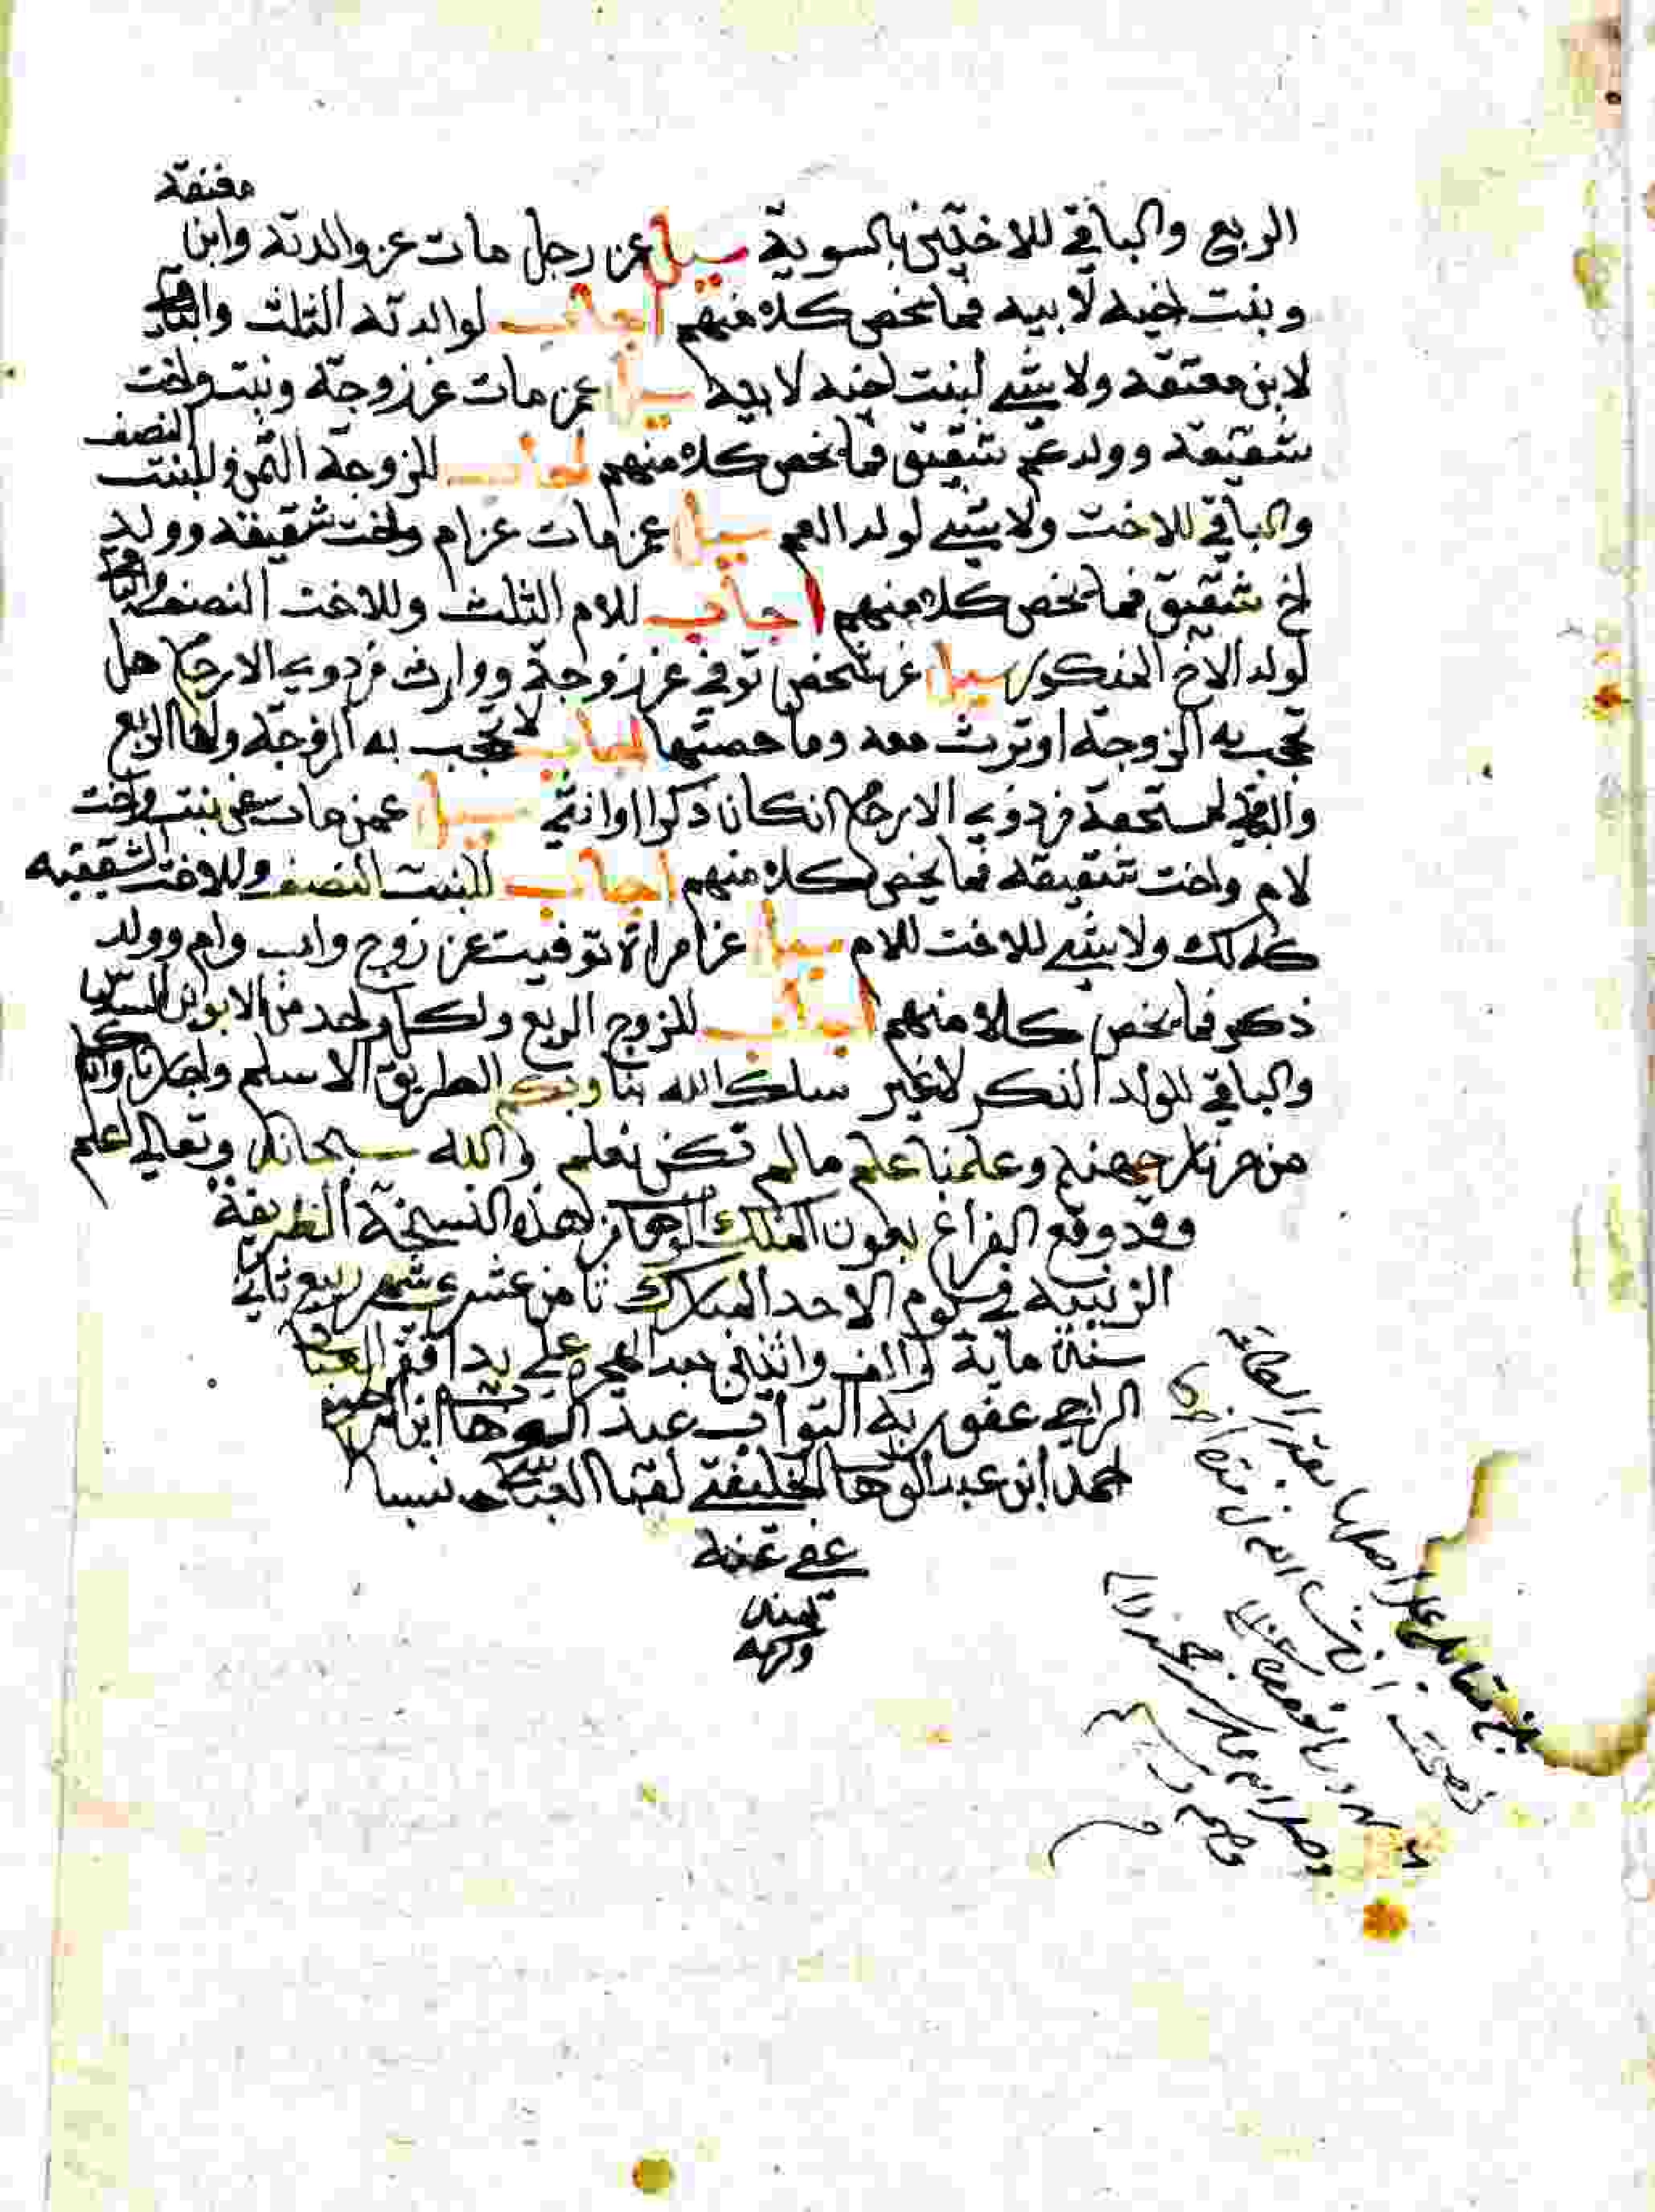 الربع والباقي للاختين بالسوية سيل عن رجل مات عن والدته وابن معتقه
وبنت اخيه لابيه فما يخص كلا منهم اجاب لوالدته الثلث والباقي
لابن معتقه ولا شي لبنت اخيه لابيه سيل عمن مات عن زوجة وبنت واخت
شقيقة وولد عم شقيق فما يخص كلا منهم اجاب للزوجة الثمن وللبنت النصف
والباقي للاخت ولا شي لولد العم سيل عمن مات عن ام واخت شقيقة وولد
اخ شقيق فما يخص كلا منهم اجاب للام الثلث وللاخت النصف والباقي
لولد الاخ المذكور سيل عن شخص توفي عن زوجة ووارث من ذوي الارحام هل
تحجب به الزوجة او ترث معه وما حصتها اجاب لا تحجب به الزوجة ولها الربع
والباقي لمستحقه من ذوي الارحام ان كان ذكرا او انثي سيل عمن مات عن بنت واخت
لام واخت شقيقة فما يخص كلا منهم اجاب للبنت النصف وللاخت الشقيقه
كذلك ولا شي للاخت للام سيل عن امراة توفيت عن زوج واب وام وولد
ذكر فما يخص كلا منهم اجاب للزوج الربع ولكل واحد من الابوين السدس
والباقي للولد الذكر لا غير سلك الله بنا وبكم الطريق الاسلم واجارنا واياكم
من حر نار جهنم وعلمنا علم ما لم نكن نعلم والله سبحانه وتعالي اعلم
وقد وقع الفراغ بعون الملك الوهاب من هذه النسخة الظريفة
الزينيه في يوم الاحد المبارك ثامن عشري شهر ربيع ثاني
سنة ماية والف واثنين بعد الهجرة علي يد افقر العباد
الراجي عفو ربه التواب عبد الوهاب ابن
احمد ابن عبد الوهاب الخليفتي لقبا العباسي نسبا
عفي عنه
بمنه
وكرمه
بلغ مقابلة علي اصلها بقدر الطاقة